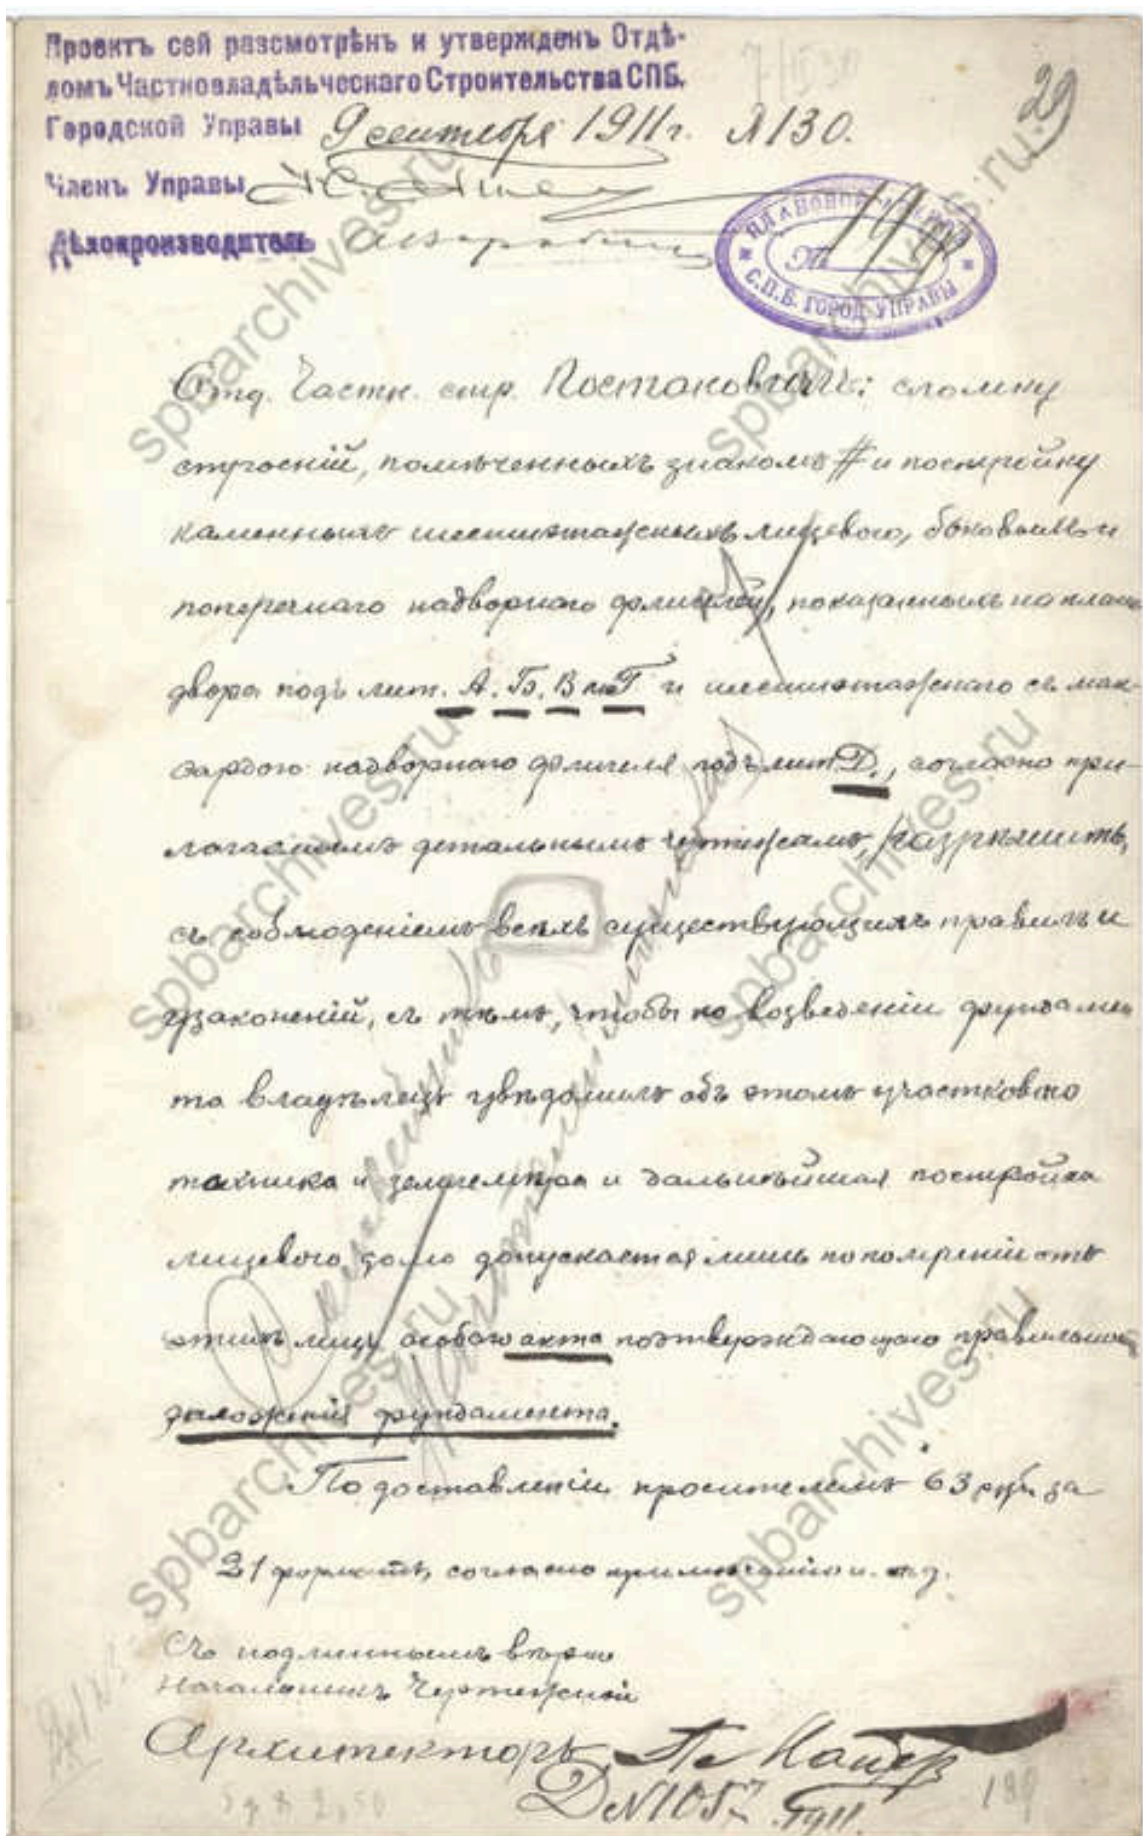 Проектъ сей разсмотрѣнъ и утвержденъ Отдѣ-
ломъ Частновладѣльческаго Строительства СПБ.
Городской Управы 9 сентября 1911 г. №130.
29
Членъ Управы
Дѣлопроизводитель
ПЛАНОВОЙ
№ 19
С.П.Б. ГОРОД. УПРАВЫ
Отд. Частн. стр. Постановилъ: сломку
строеній, помѣченныхъ знакомъ # и постройку
каменныхъ шестиэтажныхъ лицевого, боковыхъ и
поперечнаго надворнаго флигелей, показанныхъ на планѣ
двора подъ лит. А. Б. В и Г и шестиэтажнаго съ ман-
сардою надворнаго флигеля подъ лит. Д., согласно при-
лагаемымъ детальнымъ чертежамъ, разрѣшить,
съ соблюденіемъ всѣхъ существующихъ правилъ и
узаконеній, съ тѣмъ, чтобы по возведеніи фундамен
та владѣлецъ увѣдомилъ объ этомъ участковаго
техника и землемѣра и дальнѣйшая постройка
лицевого дома допускается лишь по полученіи отъ
этихъ лицъ особаго акта подтверждающаго правильность
заложенія фундамента.
По доставленіи просителемъ 63 руб. за
21 форматъ, согласно примѣчанію и. т. д.
Съ подлиннымъ вѣрно
Начальникъ Чертежной
Архитекторъ
Д №1057 1911.
189
spbarchives.ru
spbarchives.ru
spbarchives.ru
spbarchives.ru
spbarchives.ru
spbarchives.ru